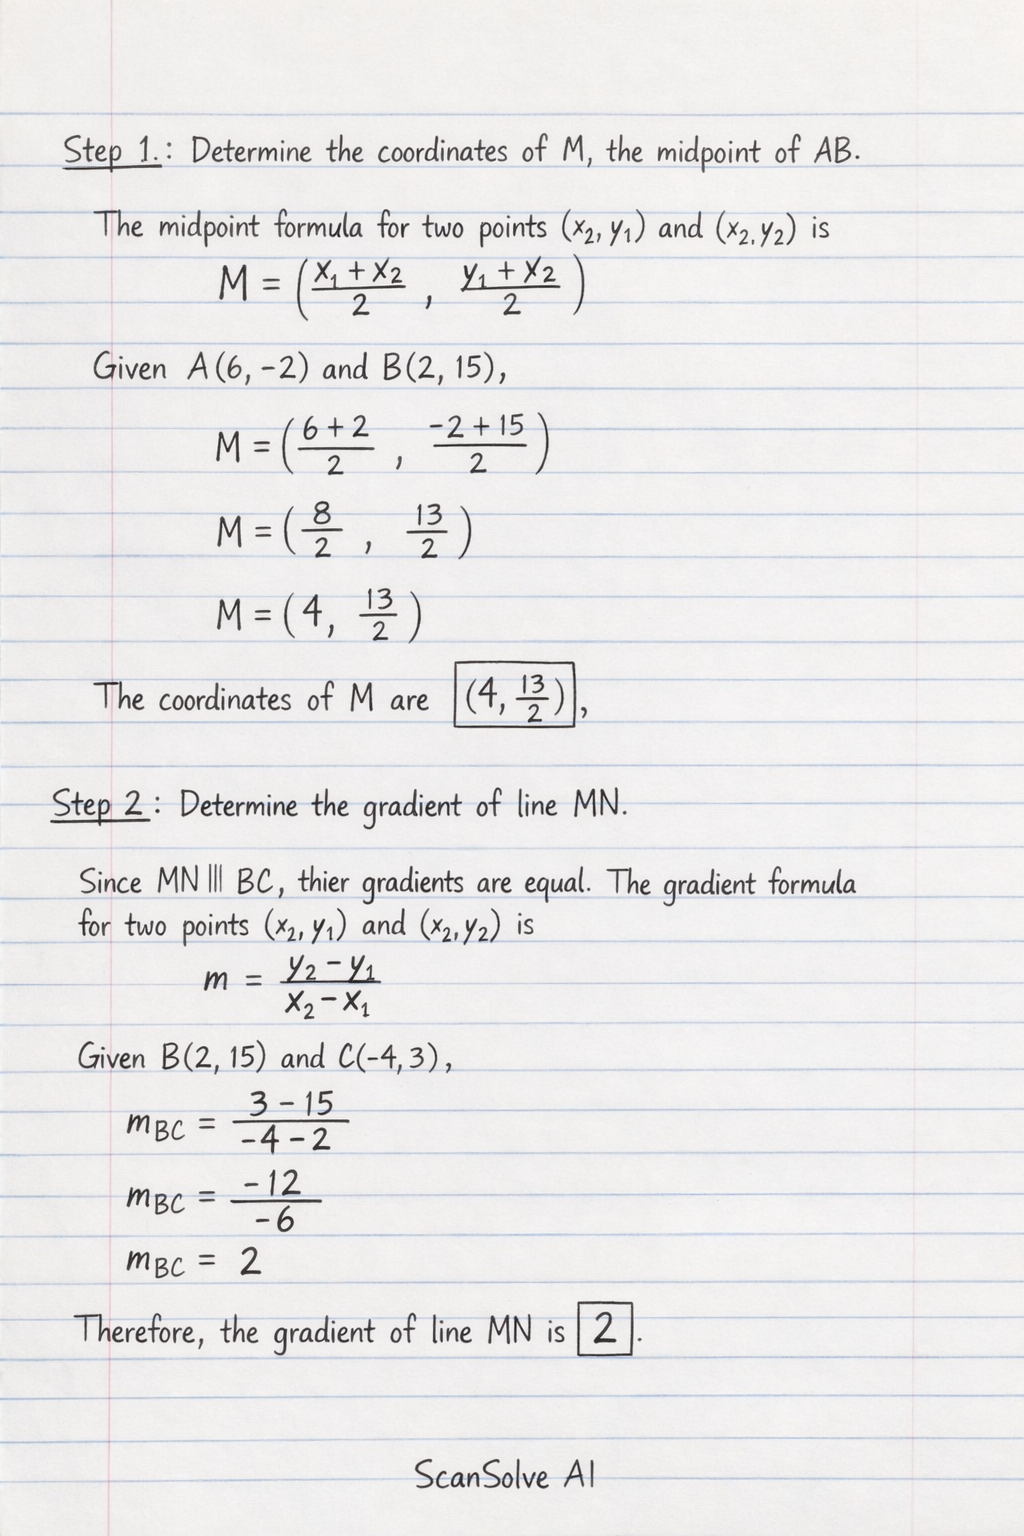 Step 1.: Determine the coordinates of M, the midpoint of AB.
The midpoint formula for two points (x₂, y₁) and (x₂, y₂) is
M = ( (x₁ + x₂)/2 , (y₁ + x₂)/2 )
Given A(6, -2) and B(2, 15),
M = ( (6 + 2)/2 , (-2 + 15)/2 )
M = ( 8/2 , 13/2 )
M = (4, 13/2 )
The coordinates of M are (4, 13/2),
Step 2: Determine the gradient of line MN.
Since MN ||| BC, thier gradients are equal. The gradient formula
for two points (x₂, y₁) and (x₂, y₂) is
m = (y₂ - y₁)/(x₂ - x₁)
Given B(2, 15) and C(-4, 3),
m_BC = (3 - 15)/(-4 - 2)
m_BC = -12/-6
m_BC = 2
Therefore, the gradient of line MN is 2.
ScanSolve AI